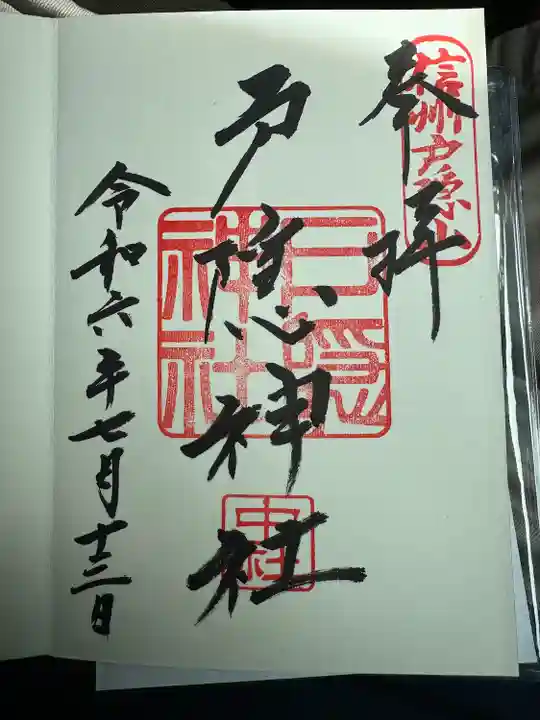 奉拝
信州戸隠山
戸隠神社
戸隠
神社
中社
令和六年七月十三日